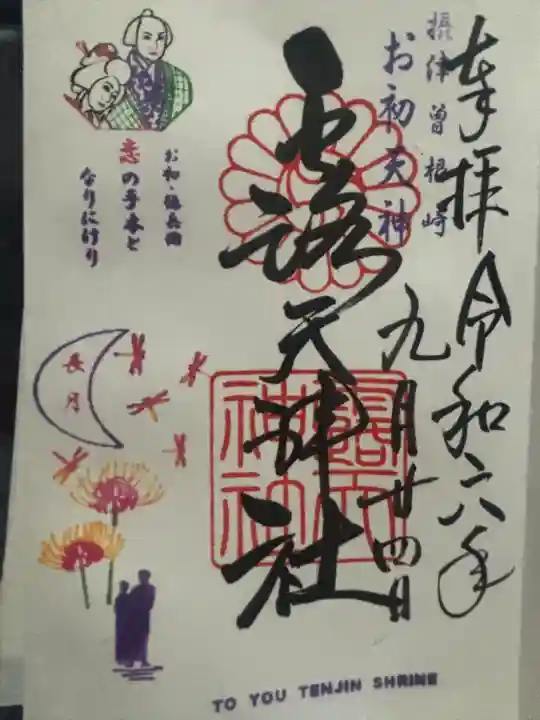 奉拝 令和六年
九月廿四日
摂津 曽根崎
お初天神
露天神社
露天
神社
お初・徳兵衛
恋の手本と
なりにけり
長月
TO YOU TENJIN SHRINE